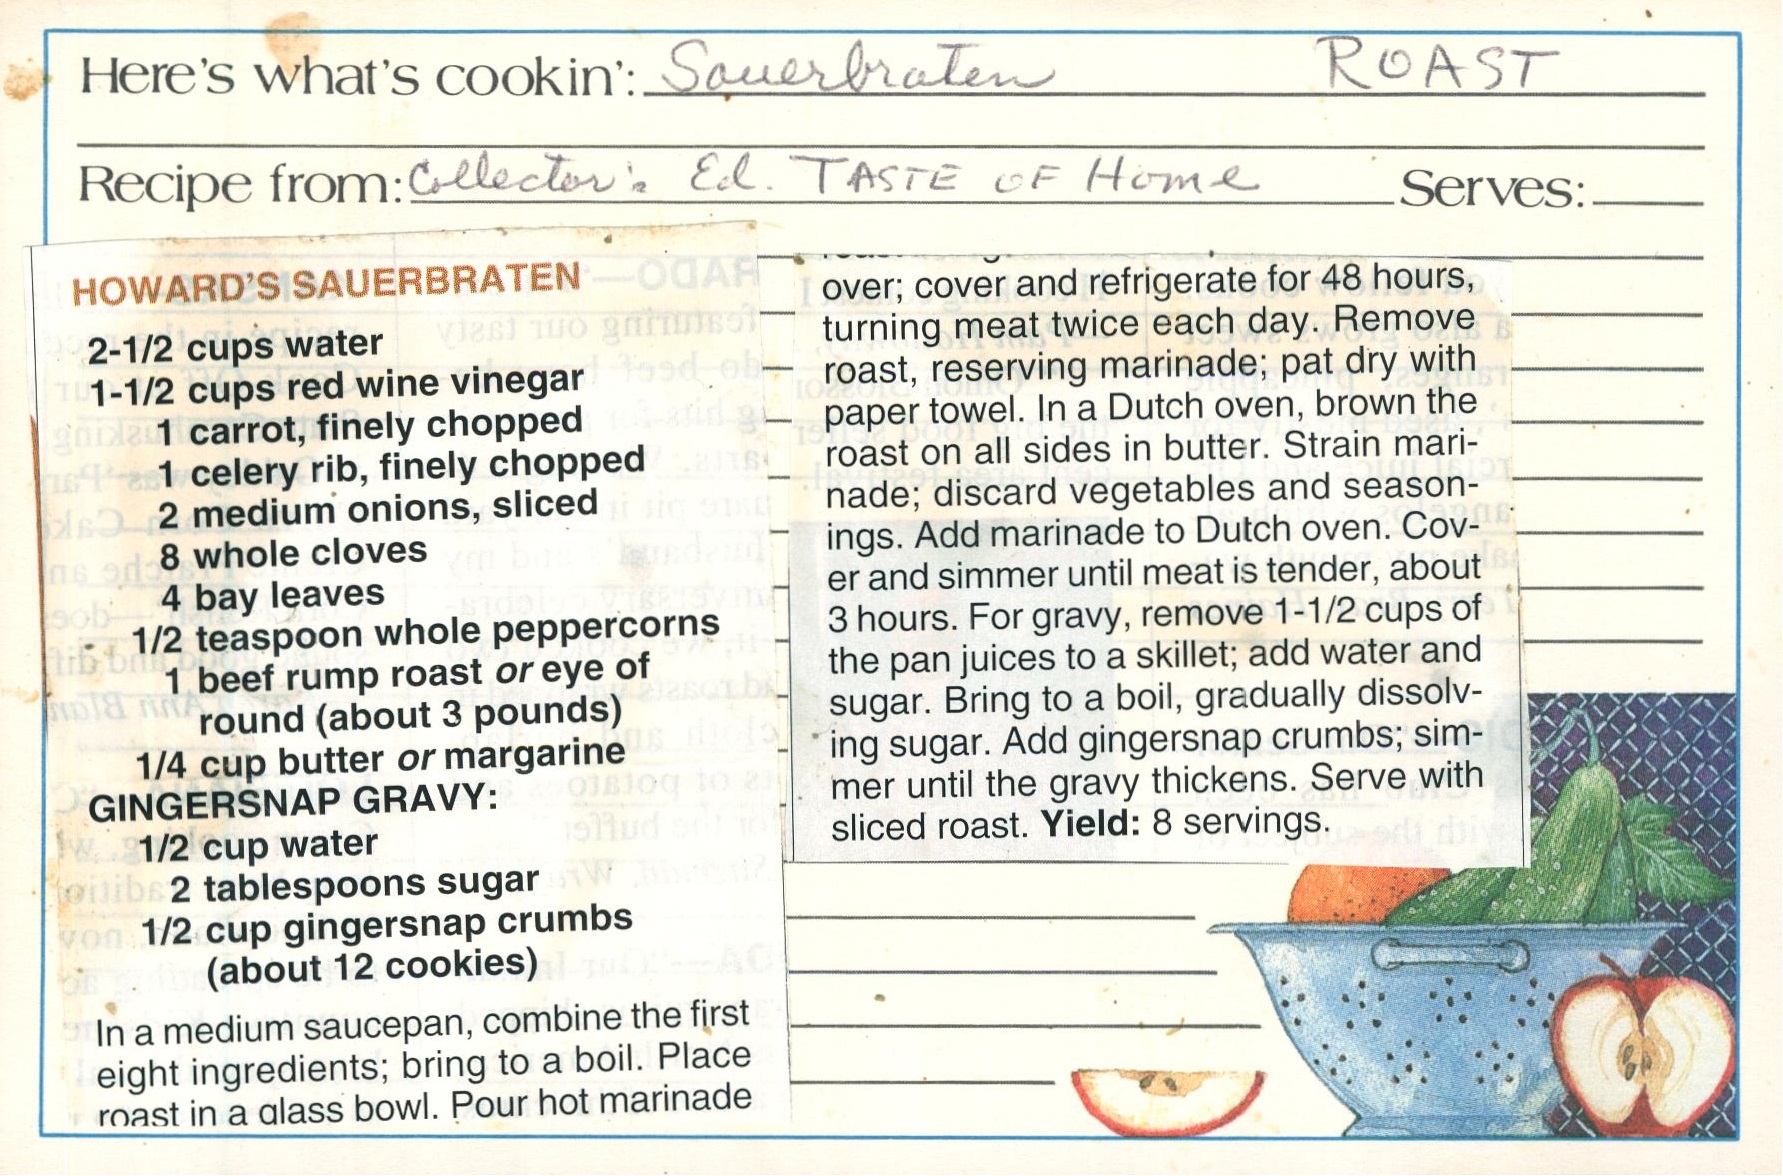 Here's what's cookin': Sauerbraten ROAST
Recipe from: Collector's Ed. TASTE OF Home Serves:
HOWARD'S SAUERBRATEN
2-1/2 cups water
1-1/2 cups red wine vinegar
1 carrot, finely chopped
1 celery rib, finely chopped
2 medium onions, sliced
8 whole cloves
4 bay leaves
1/2 teaspoon whole peppercorns
1 beef rump roast or eye of
round (about 3 pounds)
1/4 cup butter or margarine
GINGERSNAP GRAVY:
1/2 cup water
2 tablespoons sugar
1/2 cup gingersnap crumbs
(about 12 cookies)
In a medium saucepan, combine the first
eight ingredients; bring to a boil. Place
roast in a glass bowl. Pour hot marinade
over; cover and refrigerate for 48 hours,
turning meat twice each day. Remove
roast, reserving marinade; pat dry with
paper towel. In a Dutch oven, brown the
roast on all sides in butter. Strain mari-
nade; discard vegetables and season-
ings. Add marinade to Dutch oven. Cov-
er and simmer until meat is tender, about
3 hours. For gravy, remove 1-1/2 cups of
the pan juices to a skillet; add water and
sugar. Bring to a boil, gradually dissolv-
ing sugar. Add gingersnap crumbs; sim-
mer until the gravy thickens. Serve with
sliced roast. Yield: 8 servings.